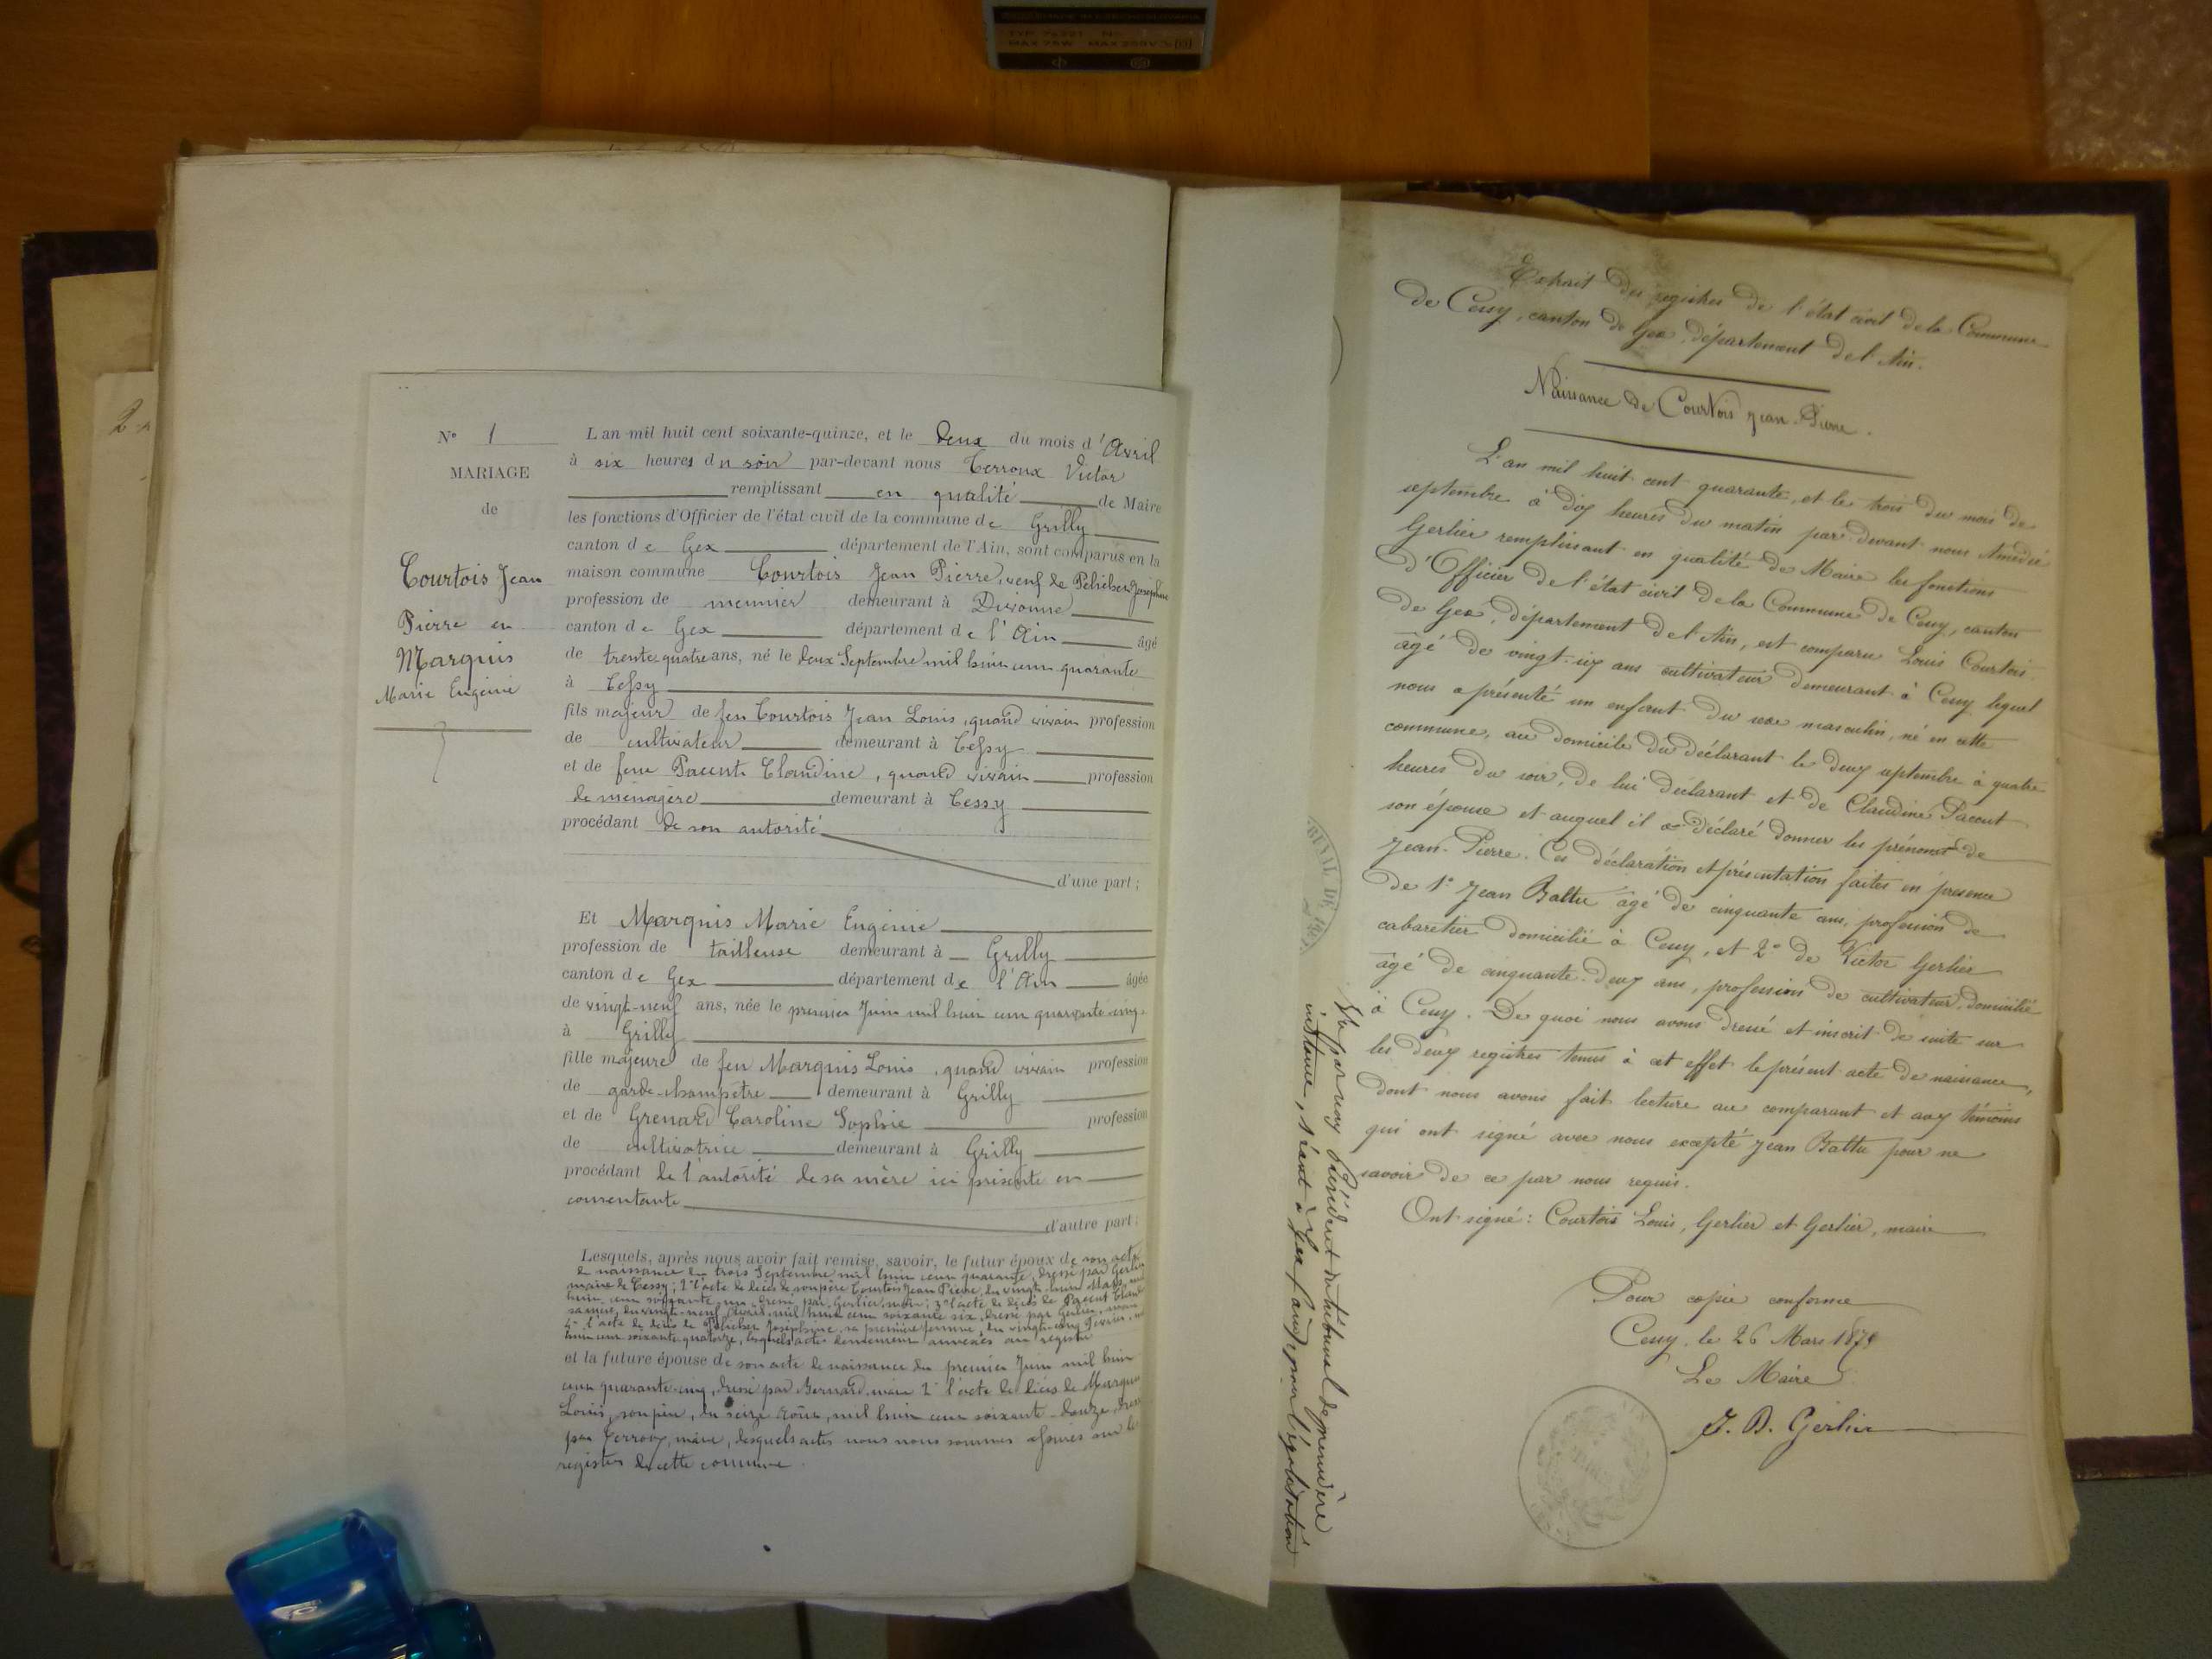 N° 1
MARIAGE
de
Courtois Jean
Pierre et
Marquis
Marie Eugénie
L'an mil huit cent soixante-quinze, et le deux du mois d'Avril
à six heures du soir par-devant nous Terroux Victor
remplissant en qualité de Maire
les fonctions d'Officier de l'état civil de la commune de Grilly
canton de Gex département de l'Ain, sont comparus en la
maison commune Courtois Jean Pierre, veuf de Josephine
profession de meunier demeurant à Divonne
canton de Gex département de l'Ain âgé
de trente quatre ans, né le deux Septembre mil huit cent quarante
à Cessy
fils majeur de feu Courtois Jean Louis, quand vivait profession
de cultivateur demeurant à Cessy
et de feue Pacent Claudine, quand vivait profession
de ménagère demeurant à Cessy
procédant de son autorité
d'une part;
Et Marquis Marie Eugénie
profession de tailleuse demeurant à Grilly
canton de Gex département de l'Ain âgée
de vingt-neuf ans, née le premier Juin mil huit cent quarante-cinq
à Grilly
fille majeure de feu Marquis Louis, quand vivait profession
de garde-champêtre demeurant à Grilly
et de Grenard Caroline Sophie profession
de cultivatrice demeurant à Grilly
procédant de l'autorité de sa mère ici présente et
consentante
d'autre part;
Lesquels, après nous avoir fait remise, savoir, le futur époux de son acte
de naissance du trois Septembre mil huit cent quarante, dressé par Gerlier
maire de Cessy; 2° l'acte de décès de son père Courtois Jean Pierre, du vingt-huit Mars mil
huit cent soixante un, dressé par Gerlier, maire; 3° l'acte de décès de Pacent Claudine
sa mère, du vingt-neuf Avril mil huit cent soixante six, dressé par Gerlier, maire
4° l'acte de décès de Joséphine, sa première femme, du vingt-cinq Février mil
huit cent soixante quatorze, lesquels actes demeurent annexés au registre
et la future épouse de son acte de naissance du premier Juin mil huit
cent quarante-cinq, dressé par Bernard, maire 2° l'acte de décès de Marquis
Louis, son père, du seize Août, mil huit cent soixante-douze, dressé
par Terroux, maire, desquels actes nous nous sommes assurés sur les
registres de cette commune.
Extrait des registres de l'état civil de la Commune
de Cessy, canton de Gex, département de l'Ain.
Naissance de Courtois Jean-Pierre.
L'an mil huit cent quarante, et le trois du mois de
septembre à dix heures du matin par devant nous Amédée
Gerlier remplissant en qualité de Maire les fonctions
d'Officier de l'état civil de la Commune de Cessy, canton
de Gex, département de l'Ain, est comparu Louis Courtois
âgé de vingt-six ans cultivateur demeurant à Cessy lequel
nous a présenté un enfant du sexe masculin, né en cette
commune, au domicile du déclarant le deux septembre à quatre
heures du soir, de lui déclarant et de Claudine Pacout
son épouse et auquel il a déclaré donner les prénoms de
Jean-Pierre. Ces déclaration et présentation faites en présence
de 1° Jean Battu âgé de cinquante ans, profession de
cabaretier domicilié à Cessy, et 2° de Victor Gerlier
âgé de cinquante-deux ans, profession de cultivateur, domicilié
à Cessy. De quoi nous avons dressé et inscrit de suite sur
les deux registres tenus à cet effet le présent acte de naissance,
dont nous avons fait lecture au comparant et aux témoins
qui ont signé avec nous excepté Jean Battu pour ne
savoir de ce par nous requis.
Ont signé: Courtois Louis, Gerlier et Gerlier, maire
Pour copie conforme
Cessy, le 26 Mars 1875
Le Maire
J. B. Gerlier
Vu par nous Président du tribunal de première
instance, séant à Gex (Ain) pour légalisation